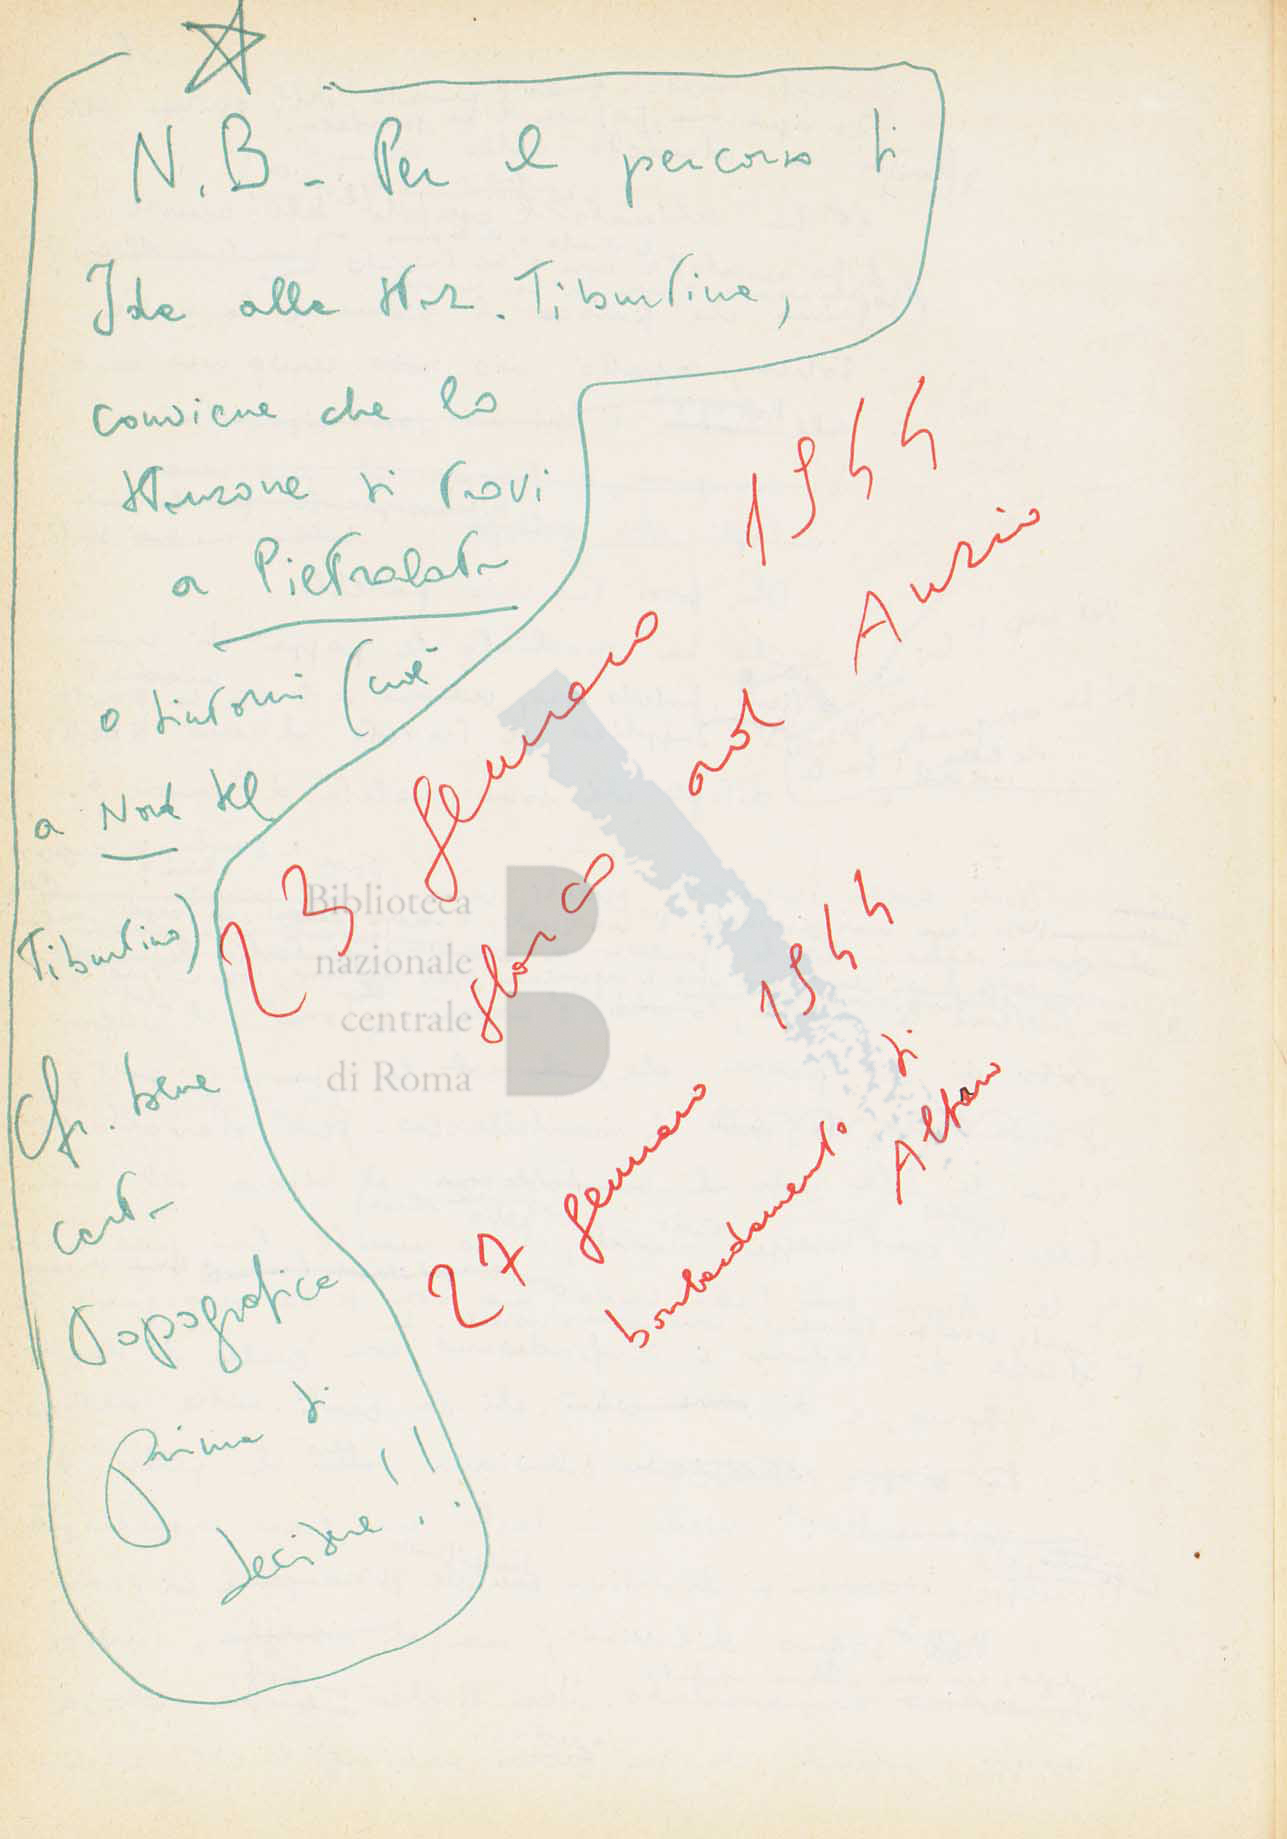 N.B - Per il percorso di
Ida alla Staz. Tiburtina,
conviene che lo
stanzone si trovi
a Pietralata
o dintorni (cioè
a Nord del
Tiburtino)
Cfr. bene
carta
topografica
prima di
decidere!!
23 gennaio 1944
sbarco ad Anzio
27 gennaio 1944
bombardamento di
Albano
Biblioteca
nazionale
centrale
di Roma